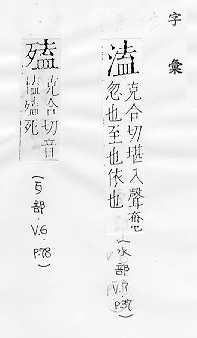 字彙
溘
克合切堪入聲奄
忽也至也依也
(水部
V.7
P.37)
㱼
克合切音
溘㱼死
(歹部.
V.6.
P.78)